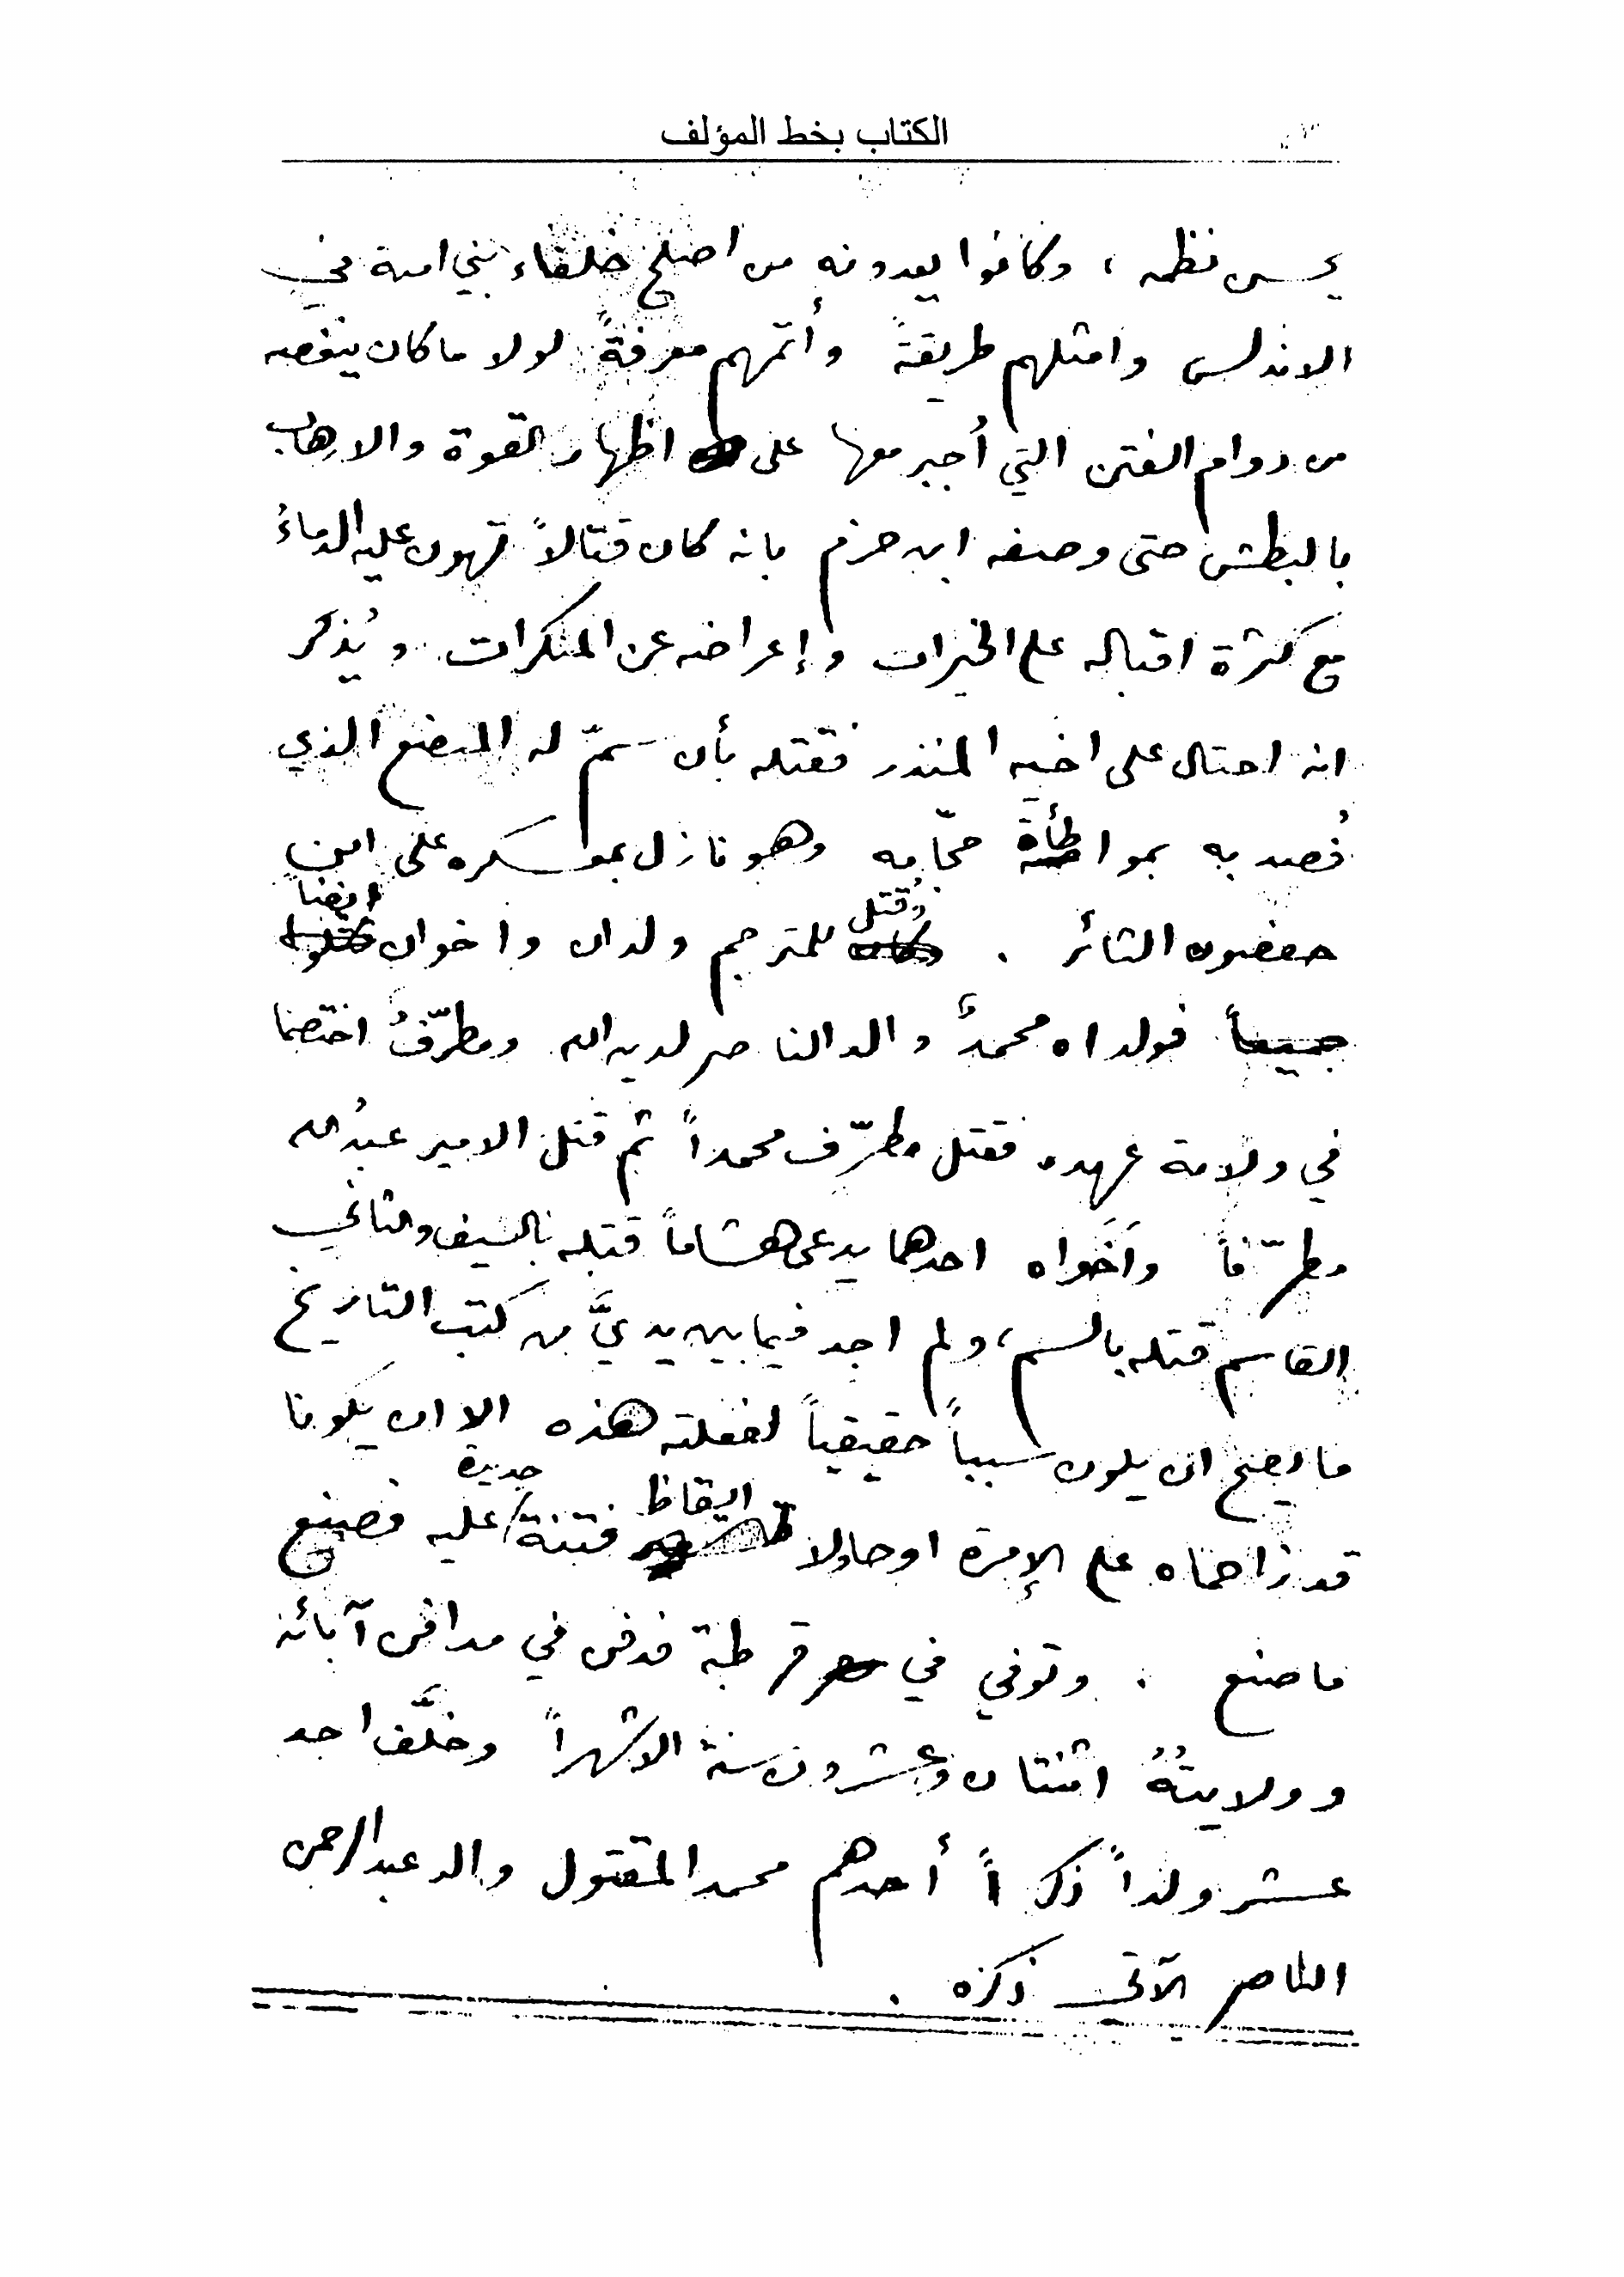 الكتاب بخط المؤلف
يحسن نظمه ، وكانوا يعدونه من اصلح خلفاء بني امية في
الاندلس وامثلهم طريقةً وأتمّهم معرفةً لولا ما كان ينغصه
من دوام الفتن التي أُجبر معها على اظهار القوة والارهاب
بالبطش حتى وصفه ابن حزم بانه كان قتالاً تهون عليه الدماءُ
مع كثرة اقباله على الخيرات وإعراضه عن المنكرات . ويُذكر
انه احتال على اخيه المنذر فقتله بأن سمّ له المبضع الذي
فُصد به بمواطأة حجّامه وهو نازل بمعسكره على ابن
حفصون الثائر . وقُتل للمترجم ولدان واخوان ايضاً
فولداه محمدٌ والد الناصر لدين الله ومطرّفُ اختصما
في ولاية عهده فقتل مطرّف محمداً ثم قتل الامير عبدُالله
مطرّفاً وأخَواه احدهما يدعى هشاماً قتله بالسيف والثاني
القاسم قتله بالسم ، ولم اجد فيما بين يديَّ من كتب التاريخ
ما يصح ان يكون سبباً حقيقياً لفعلته هذه الا ان يكونا
قد زاحماه على الإمرة او حاولا ايقاظ فتنة جديدة عليه فصنع
ما صنع . وتوفي في قرطبة فدفن في مدافن آبائه
وولايتُهُ اثنتان وعشرون سنة الا شهراً وخلَّف احد
عشر ولداً ذكراً أحدهم محمد المقتول والد عبد الرحمن
الناصر الآتي ذكره .